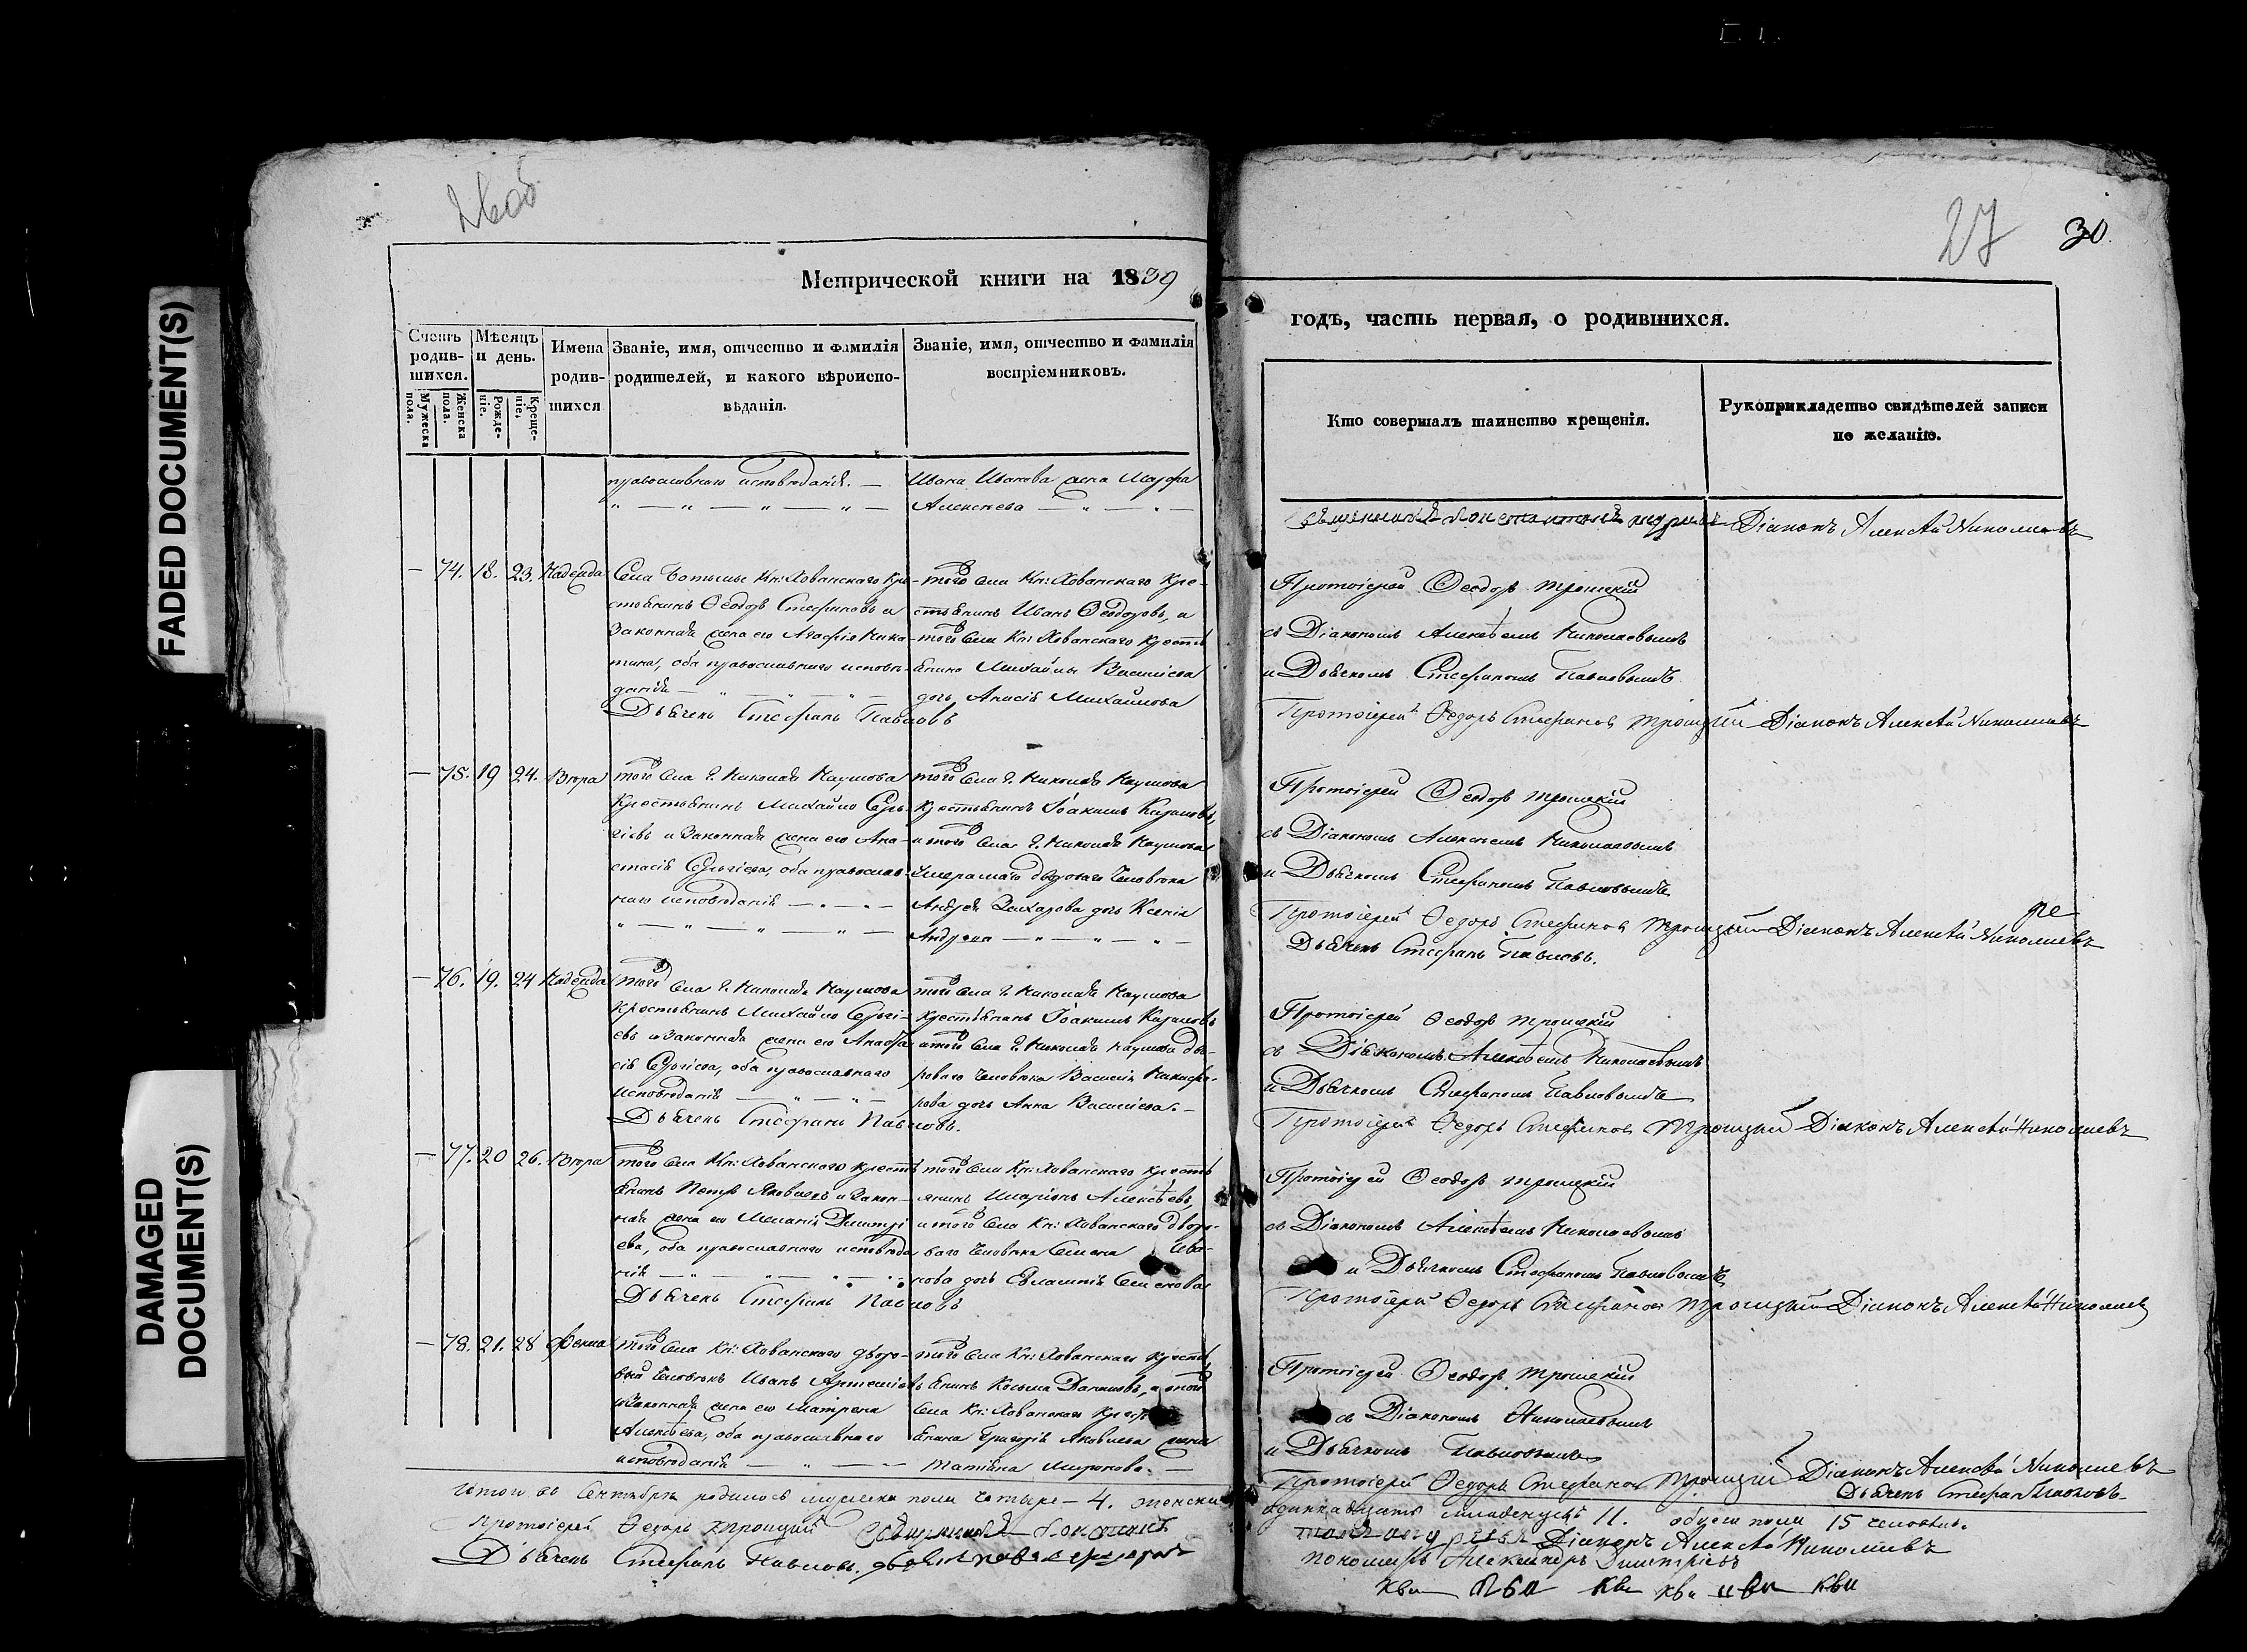 27
30.
Метрической книги на 1839
годъ, часть первая, о родившихся.
Счетъ родив-шихся.
Мужеска пола.
Женска пола.
Мѣсяцъ и день.
Рожде-ніе.
Креще-ніе.
Имена родив-шихся
Званіе, имя, отчество и фамилія родителей, и какого вѣроиспо-вѣданія.
Званіе, имя, отчество и фамилія воспріемниковъ.
Кто совершалъ таинство крещенія.
Рукоприкладство свидѣтелей записи по желанію.
православнаго исповѣданія. —
Ивана Иванова жена Марфа
Алексѣева
Діаконъ Алексѣй Николаевъ
— 74. 18. 23. Надежда
Села Кн: Хованскаго Кре-
стьянинъ Ѳеодоръ Стефановъ и
Законная жена его Агафія Ники-
тина, оба православнаго исповѣ-
данія
Дьячекъ Стефанъ Павловъ
того села Кн: Хованскаго Кре-
стьянинъ Иванъ Ѳеодоровъ, и
того села Кн: Хованскаго Кресть
янина Михайлы Васильева
дочь Михайлова
Протоіерей Ѳеодоръ Троицкій
съ Діакономъ Алексѣемъ Николаевымъ
и Дьячкомъ Стефаномъ Павловымъ
Протоіерей Ѳедоръ Стефановъ Троицкій Діаконъ Алексѣй Николаевъ
— 75. 19 24. Вѣра
того села г. Николая Наумова
Крестьянинъ Михайло Серг-
ѣевъ и Законная жена его Ана-
стасія Сергѣева, оба православ-
наго исповѣданія
того села г. Николая Наумова
крестьянинъ Іоакимъ
и того села г. Николая Наумова
умершаго двороваго человѣка
Андрея Захарова дочь Ксенія
Андреева
Протоіерей Ѳеодоръ Троицкій
съ Діакономъ Алексѣемъ Николаевымъ
и Дьячкомъ Стефаномъ Павловымъ
Протоіерей Ѳедоръ Стефановъ Троицкій Діаконъ Алексѣй Николаевъ
Дьячекъ Стефанъ Павловъ.
— 76. 19. 24 Надежда
того села г. Николая Наумова
Крестьянинъ Михайло Сергі-
евъ и Законная жена его Анаста
сія Сергіева, оба православнаго
исповѣданія
Дьячекъ Стефанъ Павловъ.
того села г. Николая Наумова
крестьянинъ Іоакимъ
и того села г. Николая Наумова дво-
роваго человѣка Василія Никифо-
рова дочь Анна Васильева. —
Протоіерей Ѳеодоръ Троицкій
съ Діакономъ Алексѣемъ Николаевымъ
и Дьячкомъ Стефаномъ Павловымъ
Протоіерей Ѳедоръ Стефановъ Троицкій Діаконъ Алексѣй Николаевъ
— 77. 20 26. Вѣра
того села Кн: Хованскаго кресть
янинъ Петръ Яковлевъ и закон-
ная жена его Меланія Димитрі
ева, оба православнаго исповѣда
нія
Дьячекъ Стефанъ Павловъ
того села Кн: Хованскаго кресть
янинъ Иларіонъ Алексѣевъ,
и того села Кн: Хованскаго дворо-
ваго человѣка Семена Ива-
нова дочь Евлампія Семенова
Протоіерей Ѳеодоръ Троицкій
съ Діакономъ Алексѣемъ Николаевымъ
и Дьячкомъ Стефаномъ Павловымъ
Протоіерей Ѳедоръ Стефановъ Троицкій Діаконъ Алексѣй Николаевъ
— 78. 21. 28 Ѳекла
того села Кн: Хованскаго дворо-
вый человѣкъ Иванъ Артемьевъ
и Законная жена его Матрена
Алексѣева, оба православнаго
исповѣданія
того села Кн: Хованскаго кресть
янинъ Косьма Даниловъ, и того
села Кн: Хованскаго крест
янина Григорія Яковлева жена
Татіяна Миронова. —
Протоіерей Ѳеодоръ Троицкій
съ Діакономъ Николаевымъ
и Дьячкомъ Павловымъ
Протоіерей Ѳедоръ Стефановъ Троицкій Діаконъ Алексѣй Николаевъ
Дьячекъ Стефанъ Павловъ.
Итого въ Сентябрѣ родилось мужеска пола четыре — 4. женска
одиннадцать младенцевъ 11. обоего пола 15 человѣкъ.
Протоіерей Ѳедоръ Троицкій
Діаконъ Алексѣй Николаевъ
Дьячекъ Стефанъ Павловъ.
пономарь Александръ Димитріевъ
FADED DOCUMENT(S)
DAMAGED DOCUMENT(S)